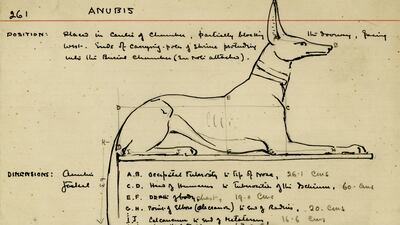 261
ANUBIS
POSITION: Placed in centre of Chamber, partially blocking the doorway, facing
west. Ends of carrying-poles of shrine protruding
into the Burial Chamber (see note attached).
A
B
D
E
C
H
DIMENSIONS:
Jackal
A.B. Occipital Tuberosity to tip of nose, 26.1 Cms
C.D. Head of Humerus to Tuberosities of the Ischium, 60. Cms
E.F. of body chest, 19.0 Cms
G.H. Point of Elbow (Olecranon) to end of Radius, 20. Cms
I.J. Calcaneum to end of Metatarsus 16.6 Cms